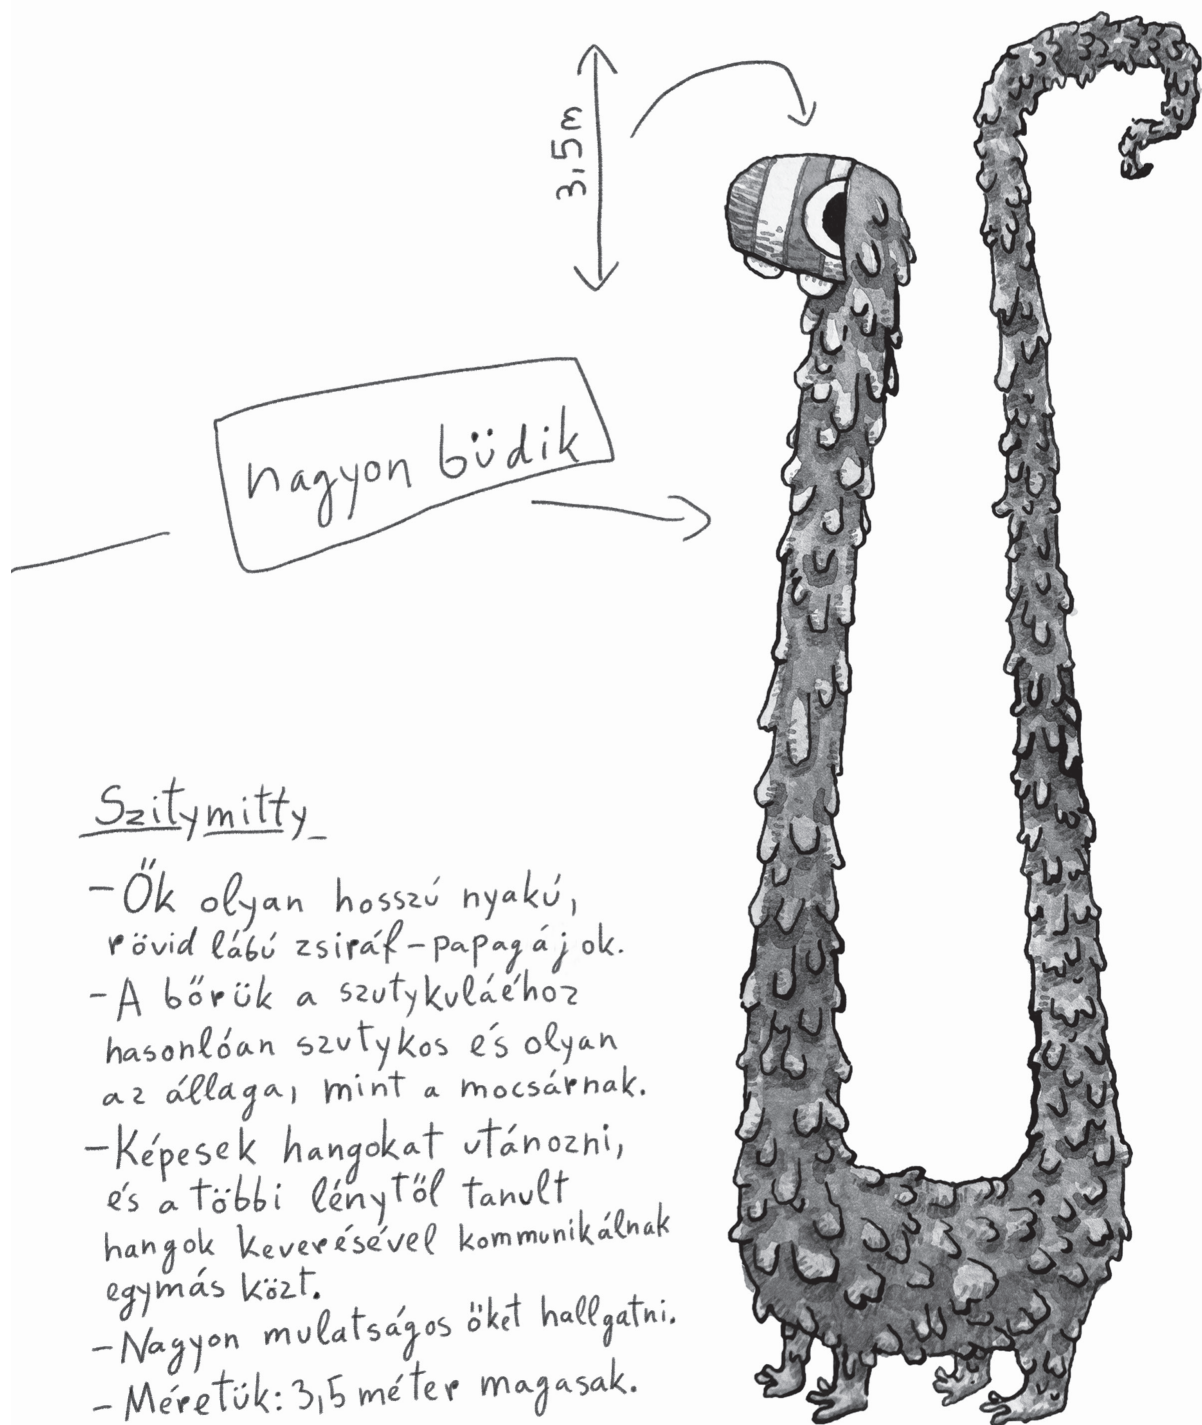 3,5m
nagyon büdik
Szitymitty
- Ők olyan hosszú nyakú,
rövid lábú zsiráf-papagájok.
- A bőrük a szutykuláéhoz
hasonlóan szutykos és olyan
az állaga, mint a mocsárnak.
- Képesek hangokat utánozni,
és a többi lénytől tanult
hangok keverésével kommunikálnak
egymás közt.
- Nagyon mulatságos őket hallgatni.
- Méretük: 3,5 méter magasak.